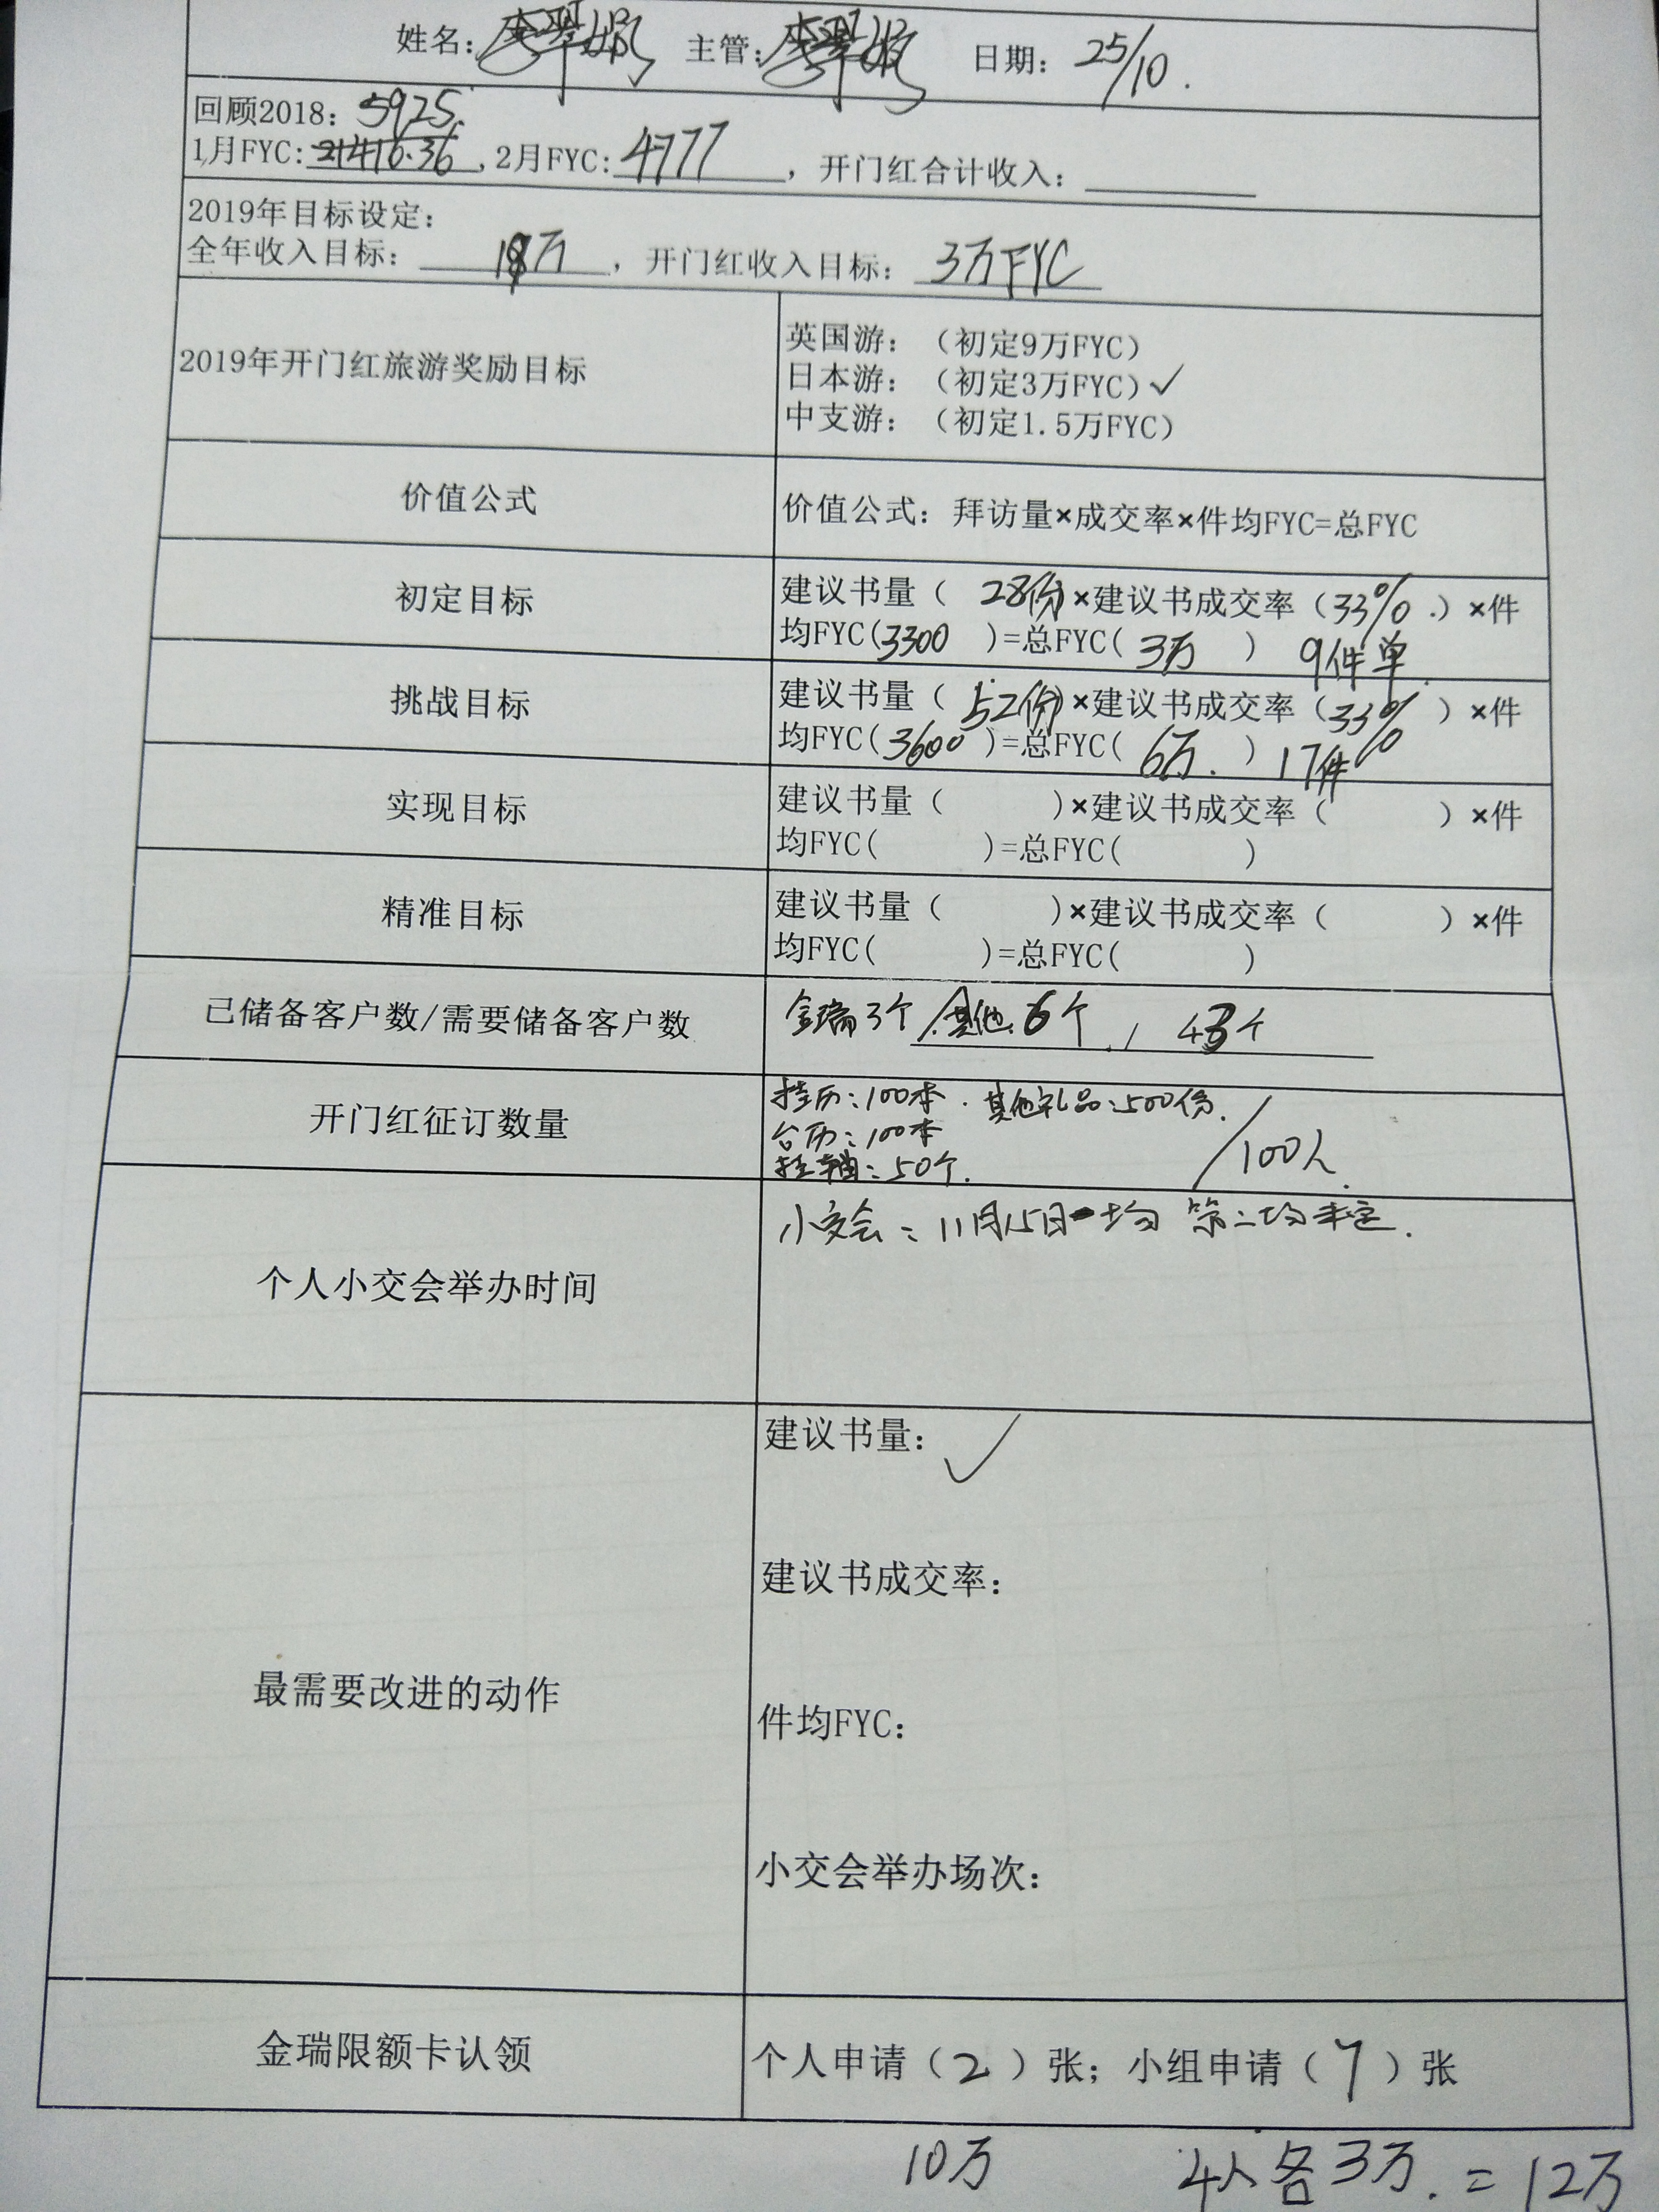 姓名： 主管： 日期：25/10.
回顾2018：5925.
1月FYC:21416.36,2月FYC:4777，开门红合计收入：
2019年目标设定：
全年收入目标：18万，开门红收入目标：3万FYC
2019年开门红旅游奖励目标
英国游：（初定9万FYC）
日本游：（初定3万FYC）✓
中支游：（初定1.5万FYC）
价值公式
价值公式：拜访量×成交率×件均FYC=总FYC
初定目标
建议书量（ 28份）×建议书成交率（33%.）×件
均FYC(3300 )=总FYC( 3万 ) 9件单.
挑战目标
建议书量（ 52份）×建议书成交率（33% ）×件
均FYC(3600 )=总FYC( 6万. ) 17件
实现目标
建议书量（ ）×建议书成交率（ ）×件
均FYC( )=总FYC( )
精准目标
建议书量（ ）×建议书成交率（ ）×件
均FYC( )=总FYC( )
已储备客户数/需要储备客户数
金瑞3个 其他6个 / 43个
开门红征订数量
挂历：100本. 其他礼品：500份.
台历：100本
挂轴：50个. /100人.
个人小交会举办时间
小交会：11月15日一场 第二场未定.
最需要改进的动作
建议书量：✓
建议书成交率：
件均FYC：
小交会举办场次：
金瑞限额卡认领
个人申请（2）张；小组申请（7）张
10万 4人各3万.=12万